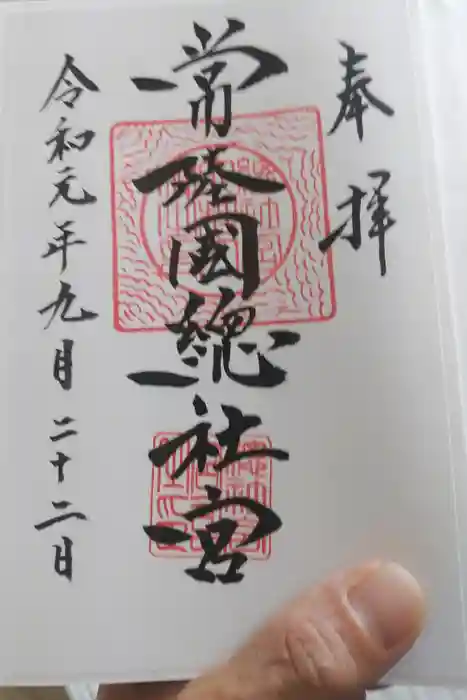 奉拝
常陸國總社宮
令和元年九月二十二日